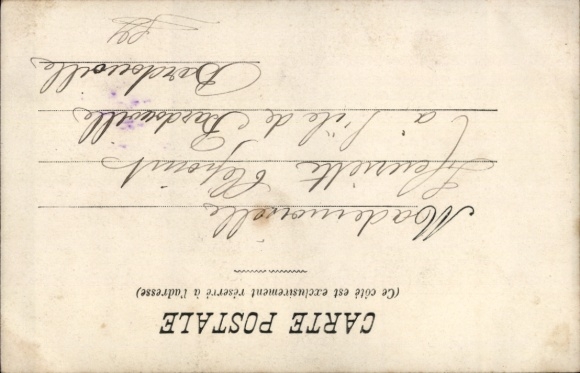 CARTE POSTALE
(Ce côté est exclusivement réservé à l'adresse)
Mademoiselle
Henriette
à l'île de Bardouville
Bardouville